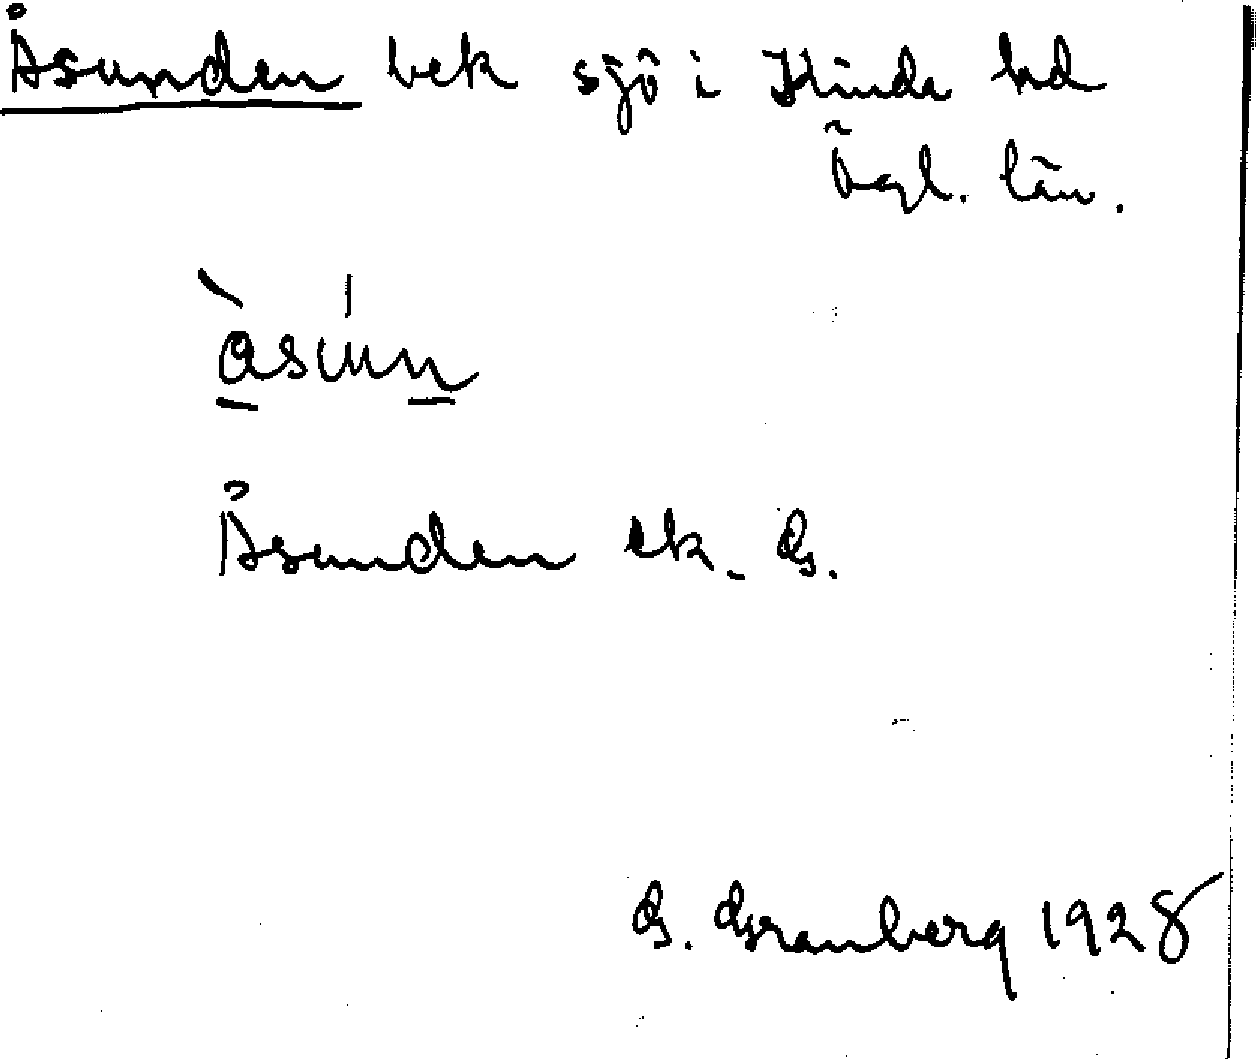 Åsunden bek sjö i Kinda hd
Ögl. län.
åsúnn
Åsunden ek. G.
G. Granberg 1928